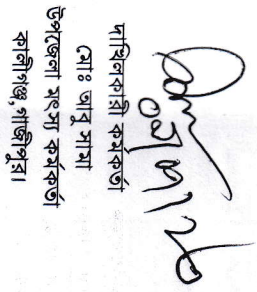 দাখিলকারী কর্মকর্তা
মোঃ আবু সামা
উপজেলা মৎস্য কর্মকর্তা
কালীগঞ্জ, গাজীপুর।